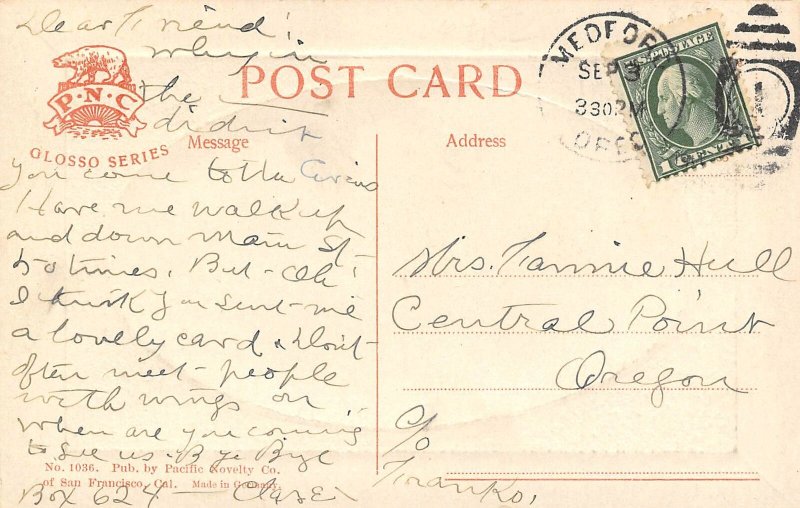 Dear Friend!
why in
the
didnt
you come to the Circus
Have me walk up
and down Main St -
50 times. But - Oh!
I think you sent - me
a lovely card & don't -
often meet - people
with wings on
when are you coming
to see us. Bye Bye
Box 624 —
P·N·C
GLOSSO SERIES
POST CARD
Message
Address
MEDFORD
SEP 3
3 30 PM
OREG
U.S. POSTAGE
1 CENT 1
1
Mrs. Fannie Hull
Central Point
Oregon
c/o
No. 1036. Pub. by Pacific Novelty Co.
of San Francisco, Cal. Made in Germany.